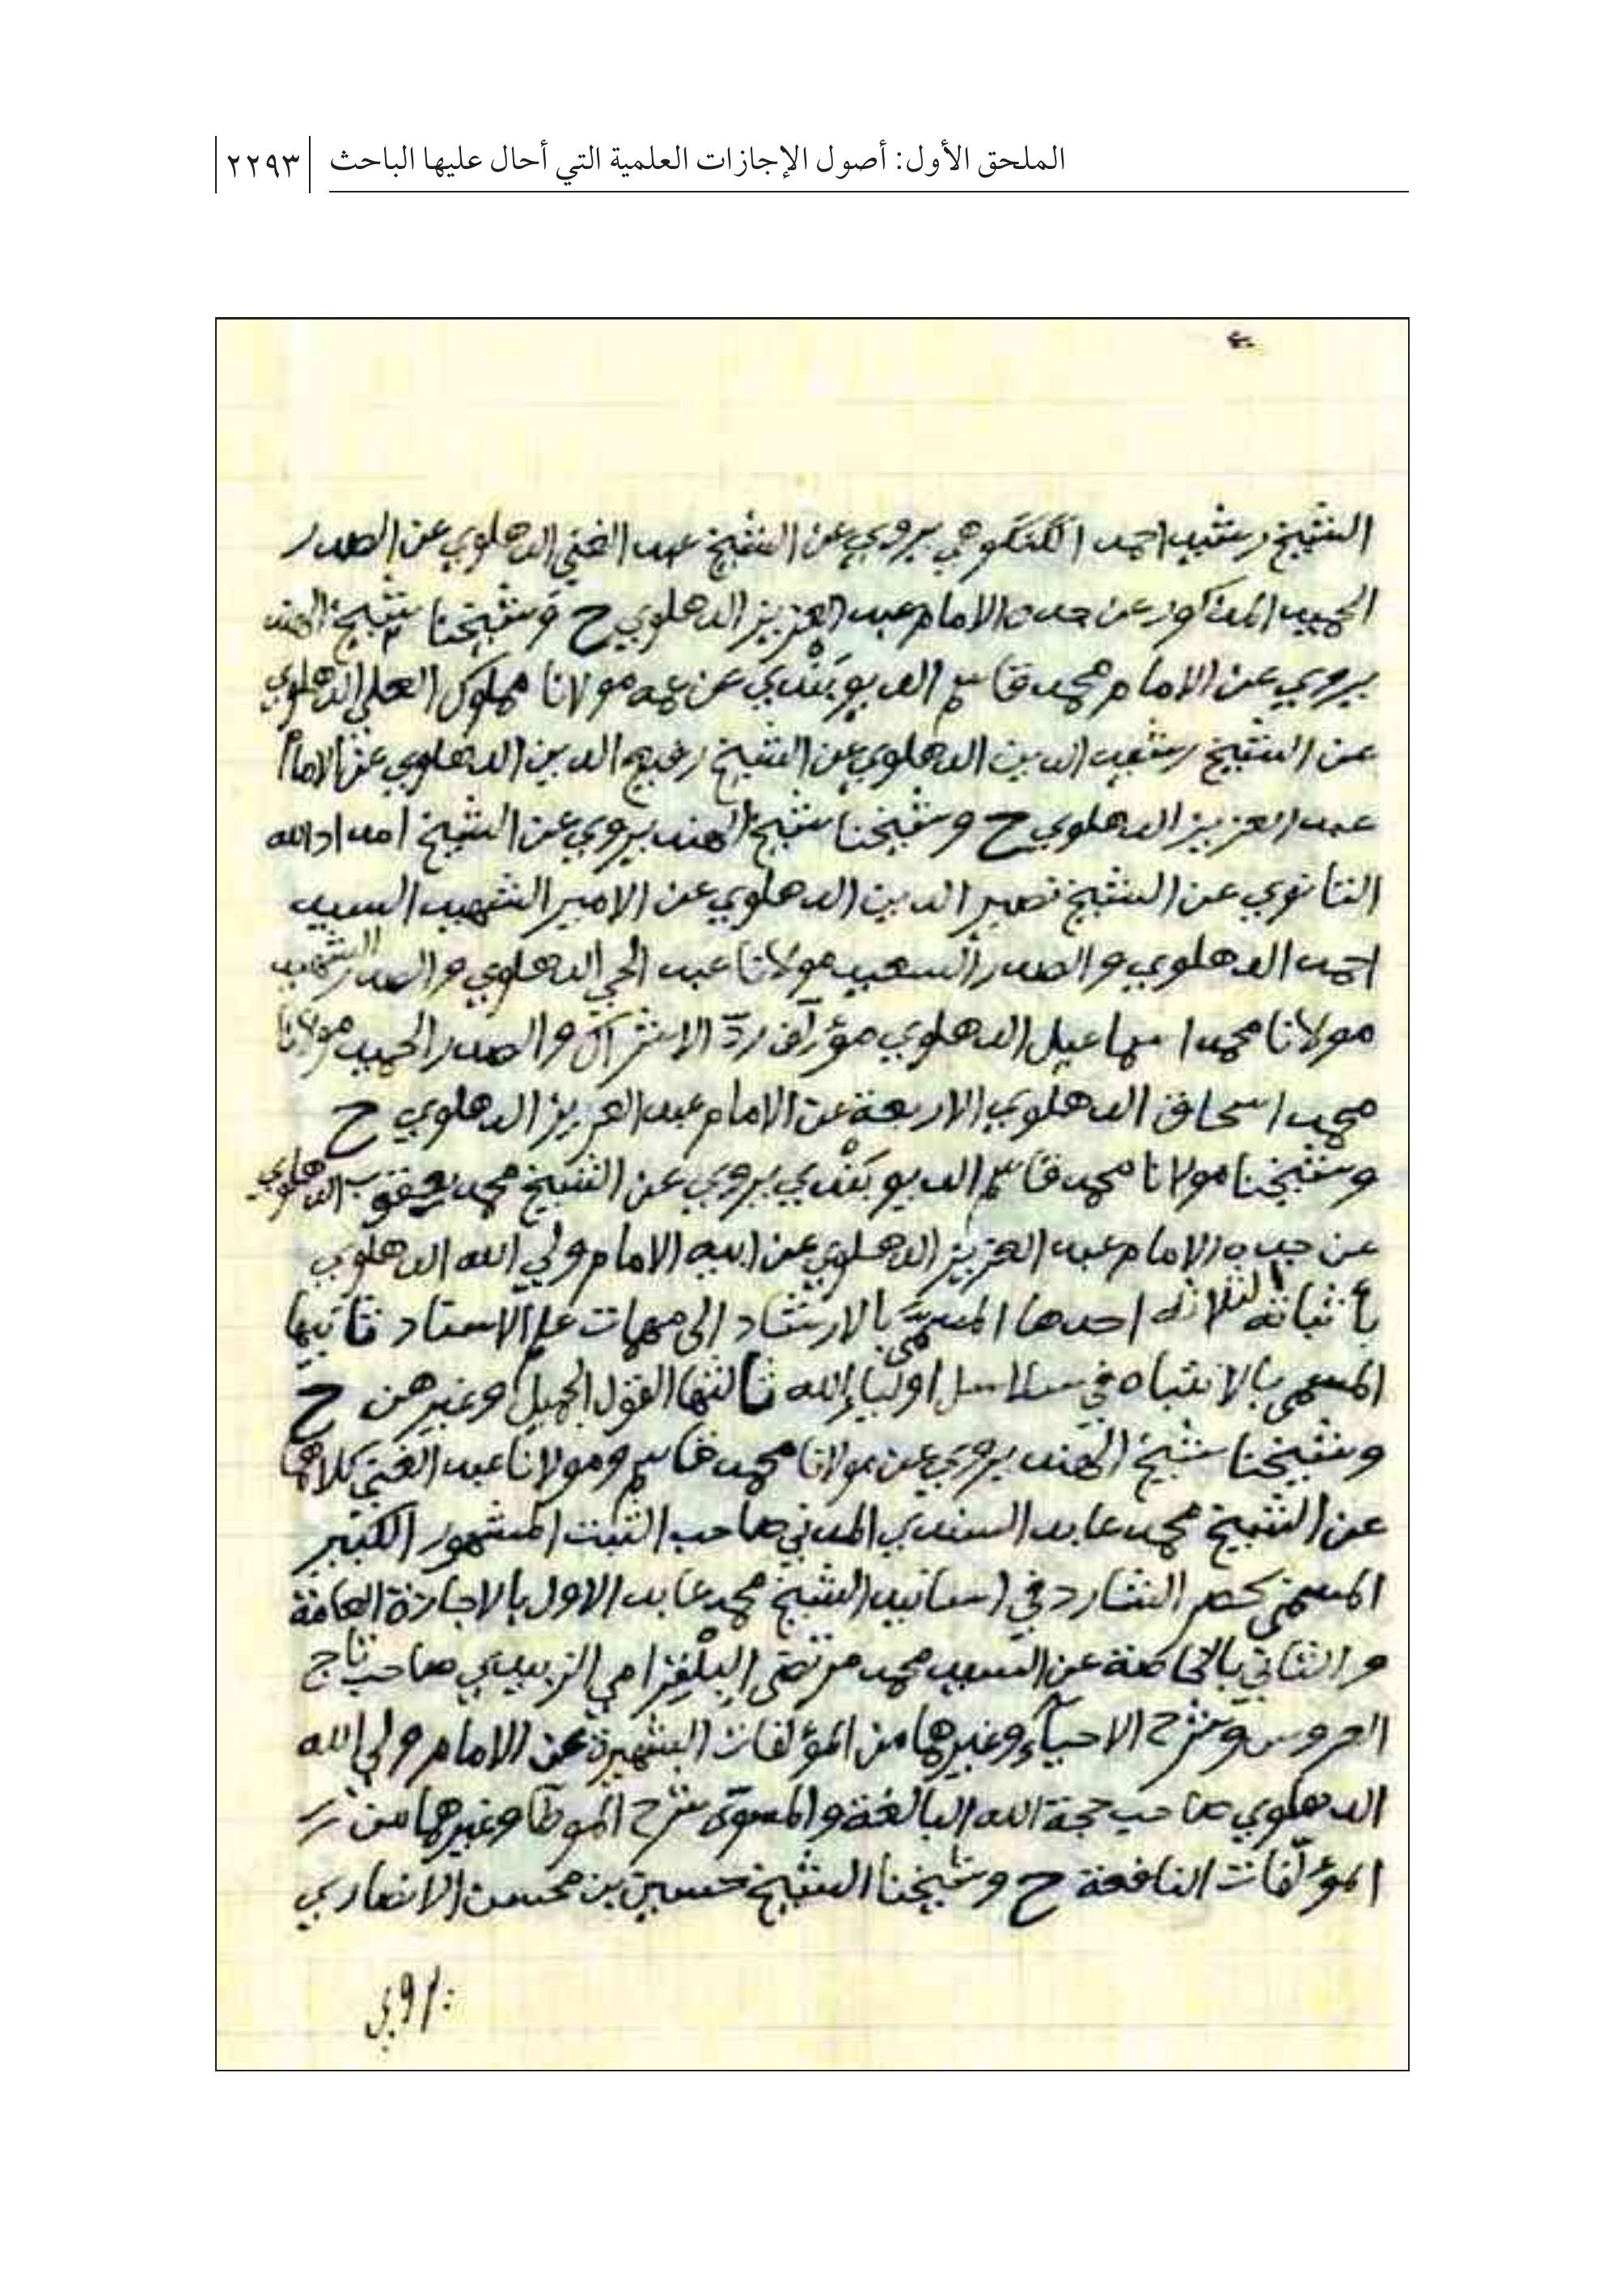 الملحق الأول: أصول الإجازات العلمية التي أحال عليها الباحث ٢٢٩٣
الشيخ رشيد احمد الكنكوهي يروي عن الشيخ عبد الغني الدهلوي عن الصدر
الحميد المذكور عن جده الامام عبد العزيز الدهلوي ح وشيخنا شيخ الهند
يروي عن الامام محمد قاسم الديوبندي عن عمه مولانا مملوك العلي الدهلوي
عن الشيخ رشيد الدين الدهلوي عن الشيخ رفيع الدين الدهلوي عن الامام
عبد العزيز الدهلوي ح وشيخنا شيخ الهند يروي عن الشيخ امداد الله
التانوي عن الشيخ نصير الدين الدهلوي عن الامير الشهيد السيد
احمد الدهلوي والصدر السعيد مولانا عبد الحي الدهلوي والصدر الشهيد
مولانا محمد اسماعيل الدهلوي مؤلف ردّ الاشراك والصدر الحميد مولانا
محمد اسحاق الدهلوي الاربعة عن الامام عبد العزيز الدهلوي ح
وشيخنا مولانا محمد قاسم الديوبندي يروي عن الشيخ محمد يعقوب الدهلوي
عن جده الامام عبد العزيز الدهلوي عن ابيه الامام ولي الله الدهلوي
بأثباته الثلاثة احدها المسمى بالارشاد الى مهمات علم الاسناد ثانيها
المسمى بالانتباه في سلاسل اولياء الله ثالثها القول الجميل وغيرهن ح
وشيخنا شيخ الهند يروي عن مولانا محمد قاسم ومولانا عبد الغني كلاهما
عن الشيخ محمد عابد السندي المدني صاحب الثبت المشهور الكبير
المسمى بحصر الشارد في اسانيد الشيخ محمد عابد الاول بالاجازة العامة
والثاني بالخاصة عن السيد محمد مرتضى البلغرامي الزبيدي صاحب تاج
العروس وشرح الاحياء وغيرهما من المؤلفات الشهيرة عن الامام ولي الله
الدهلوي صاحب حجة الله البالغة والمسوّى شرح الموطأ وغيرهما من
المؤلفات النافعة ح وشيخنا الشيخ حسين بن محسن الانصاري